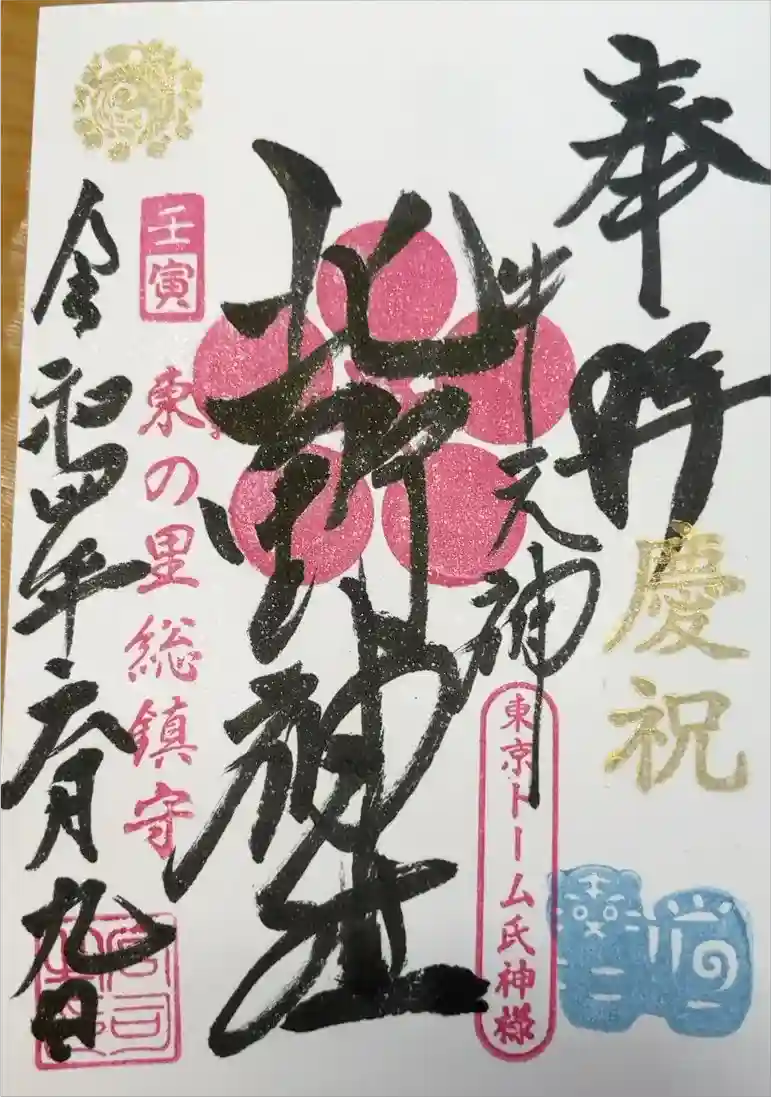 奉拝
慶祝
牛天神
東京ドーム氏神様
北野神社
壬寅
東の里総鎮守
令和四年六月九日
宮司